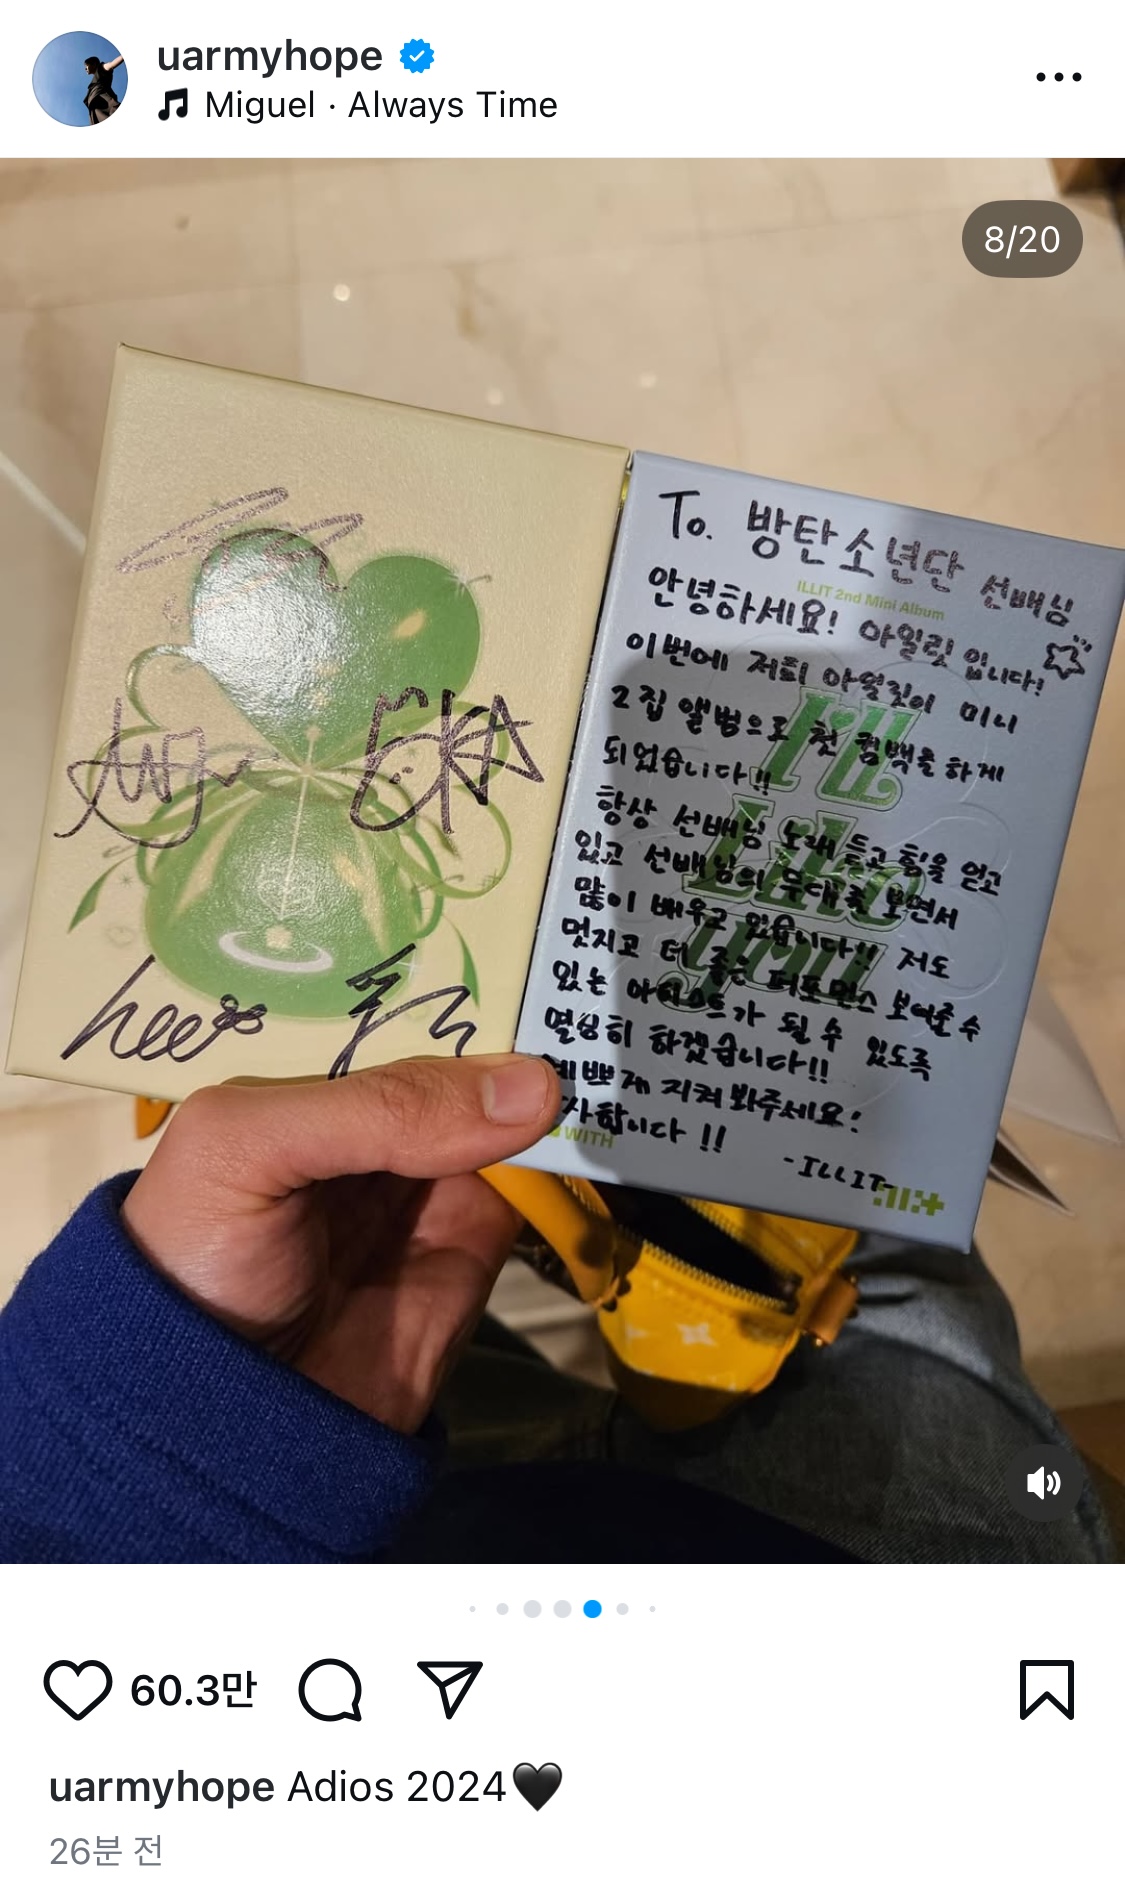 uarmyhope
Miguel · Always Time
8/20
To. 방탄소년단 선배님
ILLIT 2nd Mini Album
안녕하세요! 아일릿 입니다!
이번에 저희 아일릿이 미니
2집 앨범으로 첫 컴백을 하게
되었습니다!!
항상 선배님 노래 듣고 힘을 얻고
있고 선배님의 무대를 보면서
많이 배우고 있습니다!! 저도
멋지고 더 좋은 퍼포먼스 보여줄 수
있는 아티스트가 될 수 있도록
열심히 하겠습니다!!
예쁘게 지켜 봐주세요!
사합니다!!
WITH
-ILLIT-
I'll
Like
you
60.3만
uarmyhope Adios 2024🖤
26분 전